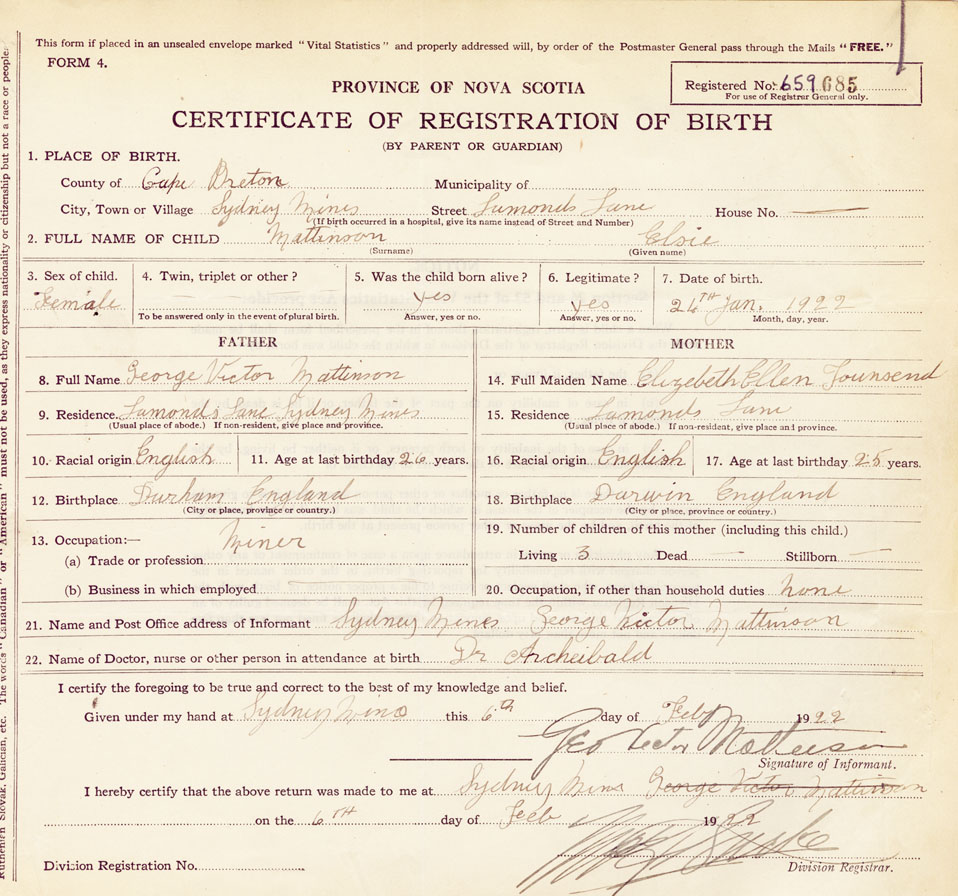 This form if placed in an unsealed envelope marked "Vital Statistics" and properly addressed will, by order of the Postmaster General pass through the Mails "FREE."
FORM 4.
Registered No. 659 685
For use of Registrar General only.
PROVINCE OF NOVA SCOTIA
CERTIFICATE OF REGISTRATION OF BIRTH
(BY PARENT OR GUARDIAN)
1. PLACE OF BIRTH.
County of Cape Breton Municipality of
City, Town or Village Sydney Mines Street Lamonds Lane House No. —
(If birth occurred in a hospital, give its name instead of Street and Number)
2. FULL NAME OF CHILD Mattinson Elsie
(Surname) (Given name)
3. Sex of child. 4. Twin, triplet or other? 5. Was the child born alive? 6. Legitimate? 7. Date of birth.
Female — — — yes yes 26TH Jan. 1922
To be answered only in the event of plural birth. Answer, yes or no. Answer, yes or no. Month, day, year.
FATHER
8. Full Name George Victor Mattinson
9. Residence. Lamonds Lane Sydney Mines
(Usual place of abode.) If non-resident, give place and province.
10. Racial origin English 11. Age at last birthday 26 years.
12. Birthplace Durham England
(City or place, province or country.)
13. Occupation:— Miner
(a) Trade or profession
(b) Business in which employed —
MOTHER
14. Full Maiden Name Elizebeth Ellen Tounsend
15. Residence Lamonds Lane
(Usual place of abode.) If non-resident, give place and province.
16. Racial origin English 17. Age at last birthday 25 years.
18. Birthplace Darwin England
(City or place, province or country.)
19. Number of children of this mother (including this child.)
Living 3 Dead — Stillborn —
20. Occupation, if other than household duties None
21. Name and Post Office address of Informant Sydney Mines George Victor Mattinson
22. Name of Doctor, nurse or other person in attendance at birth Dr Archeibald
I certify the foregoing to be true and correct to the best of my knowledge and belief.
Given under my hand at Sydney Mines this 6th day of Feb 1922
Geo Victor Mattinson
Signature of Informant.
I hereby certify that the above return was made to me at Sydney Mines George Victor Mattinson
on the 6TH day of Feb 1922
Division Registration No. Division Registrar.
Ruthenien Slovak, Galician, etc. The words "Canadian" or "American" must not be used, as they express nationality or citizenship but not a race or people.